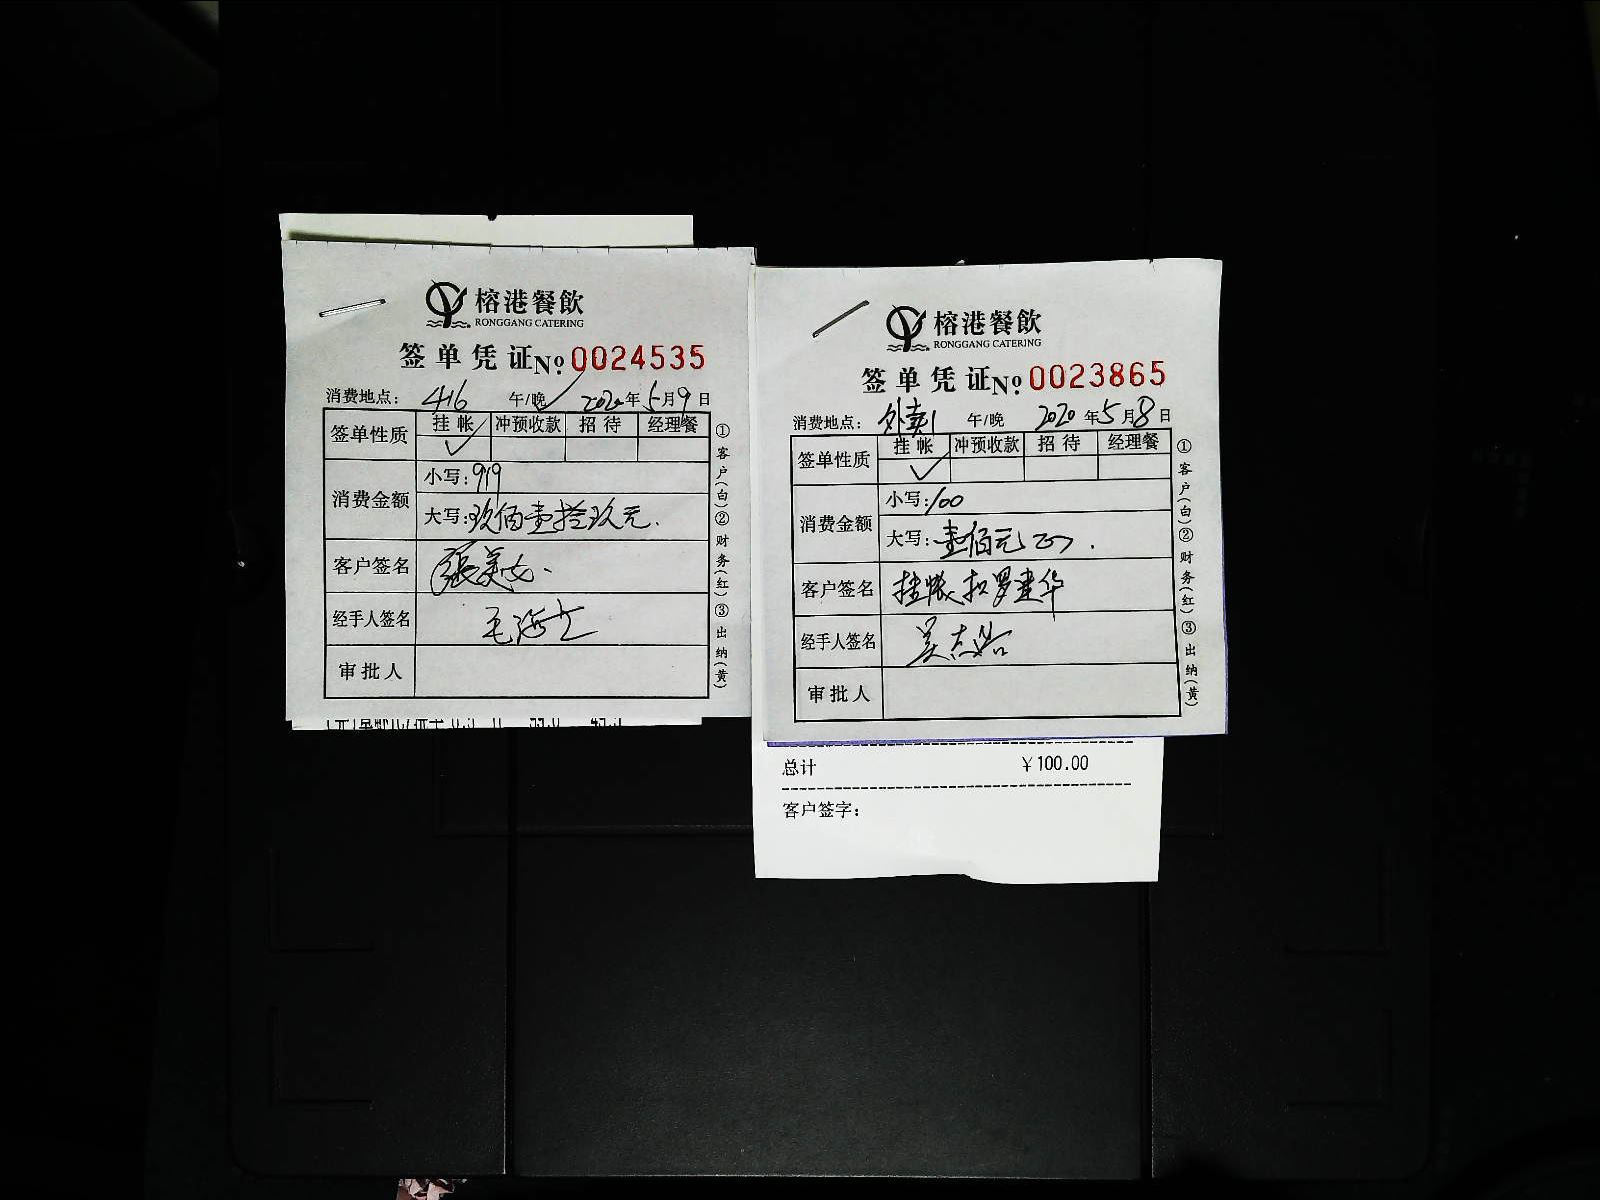 榕港餐飲
RONGGANG CATERING
签单凭证No.0024535
消费地点：416 午/晚 2020年5月9日
签单性质 挂帐 冲预收款 招待 经理餐
消费金额 小写：919
大写：玖佰壹拾玖元.
客户签名 張美女
经手人签名
审批人
①客户(白)②财务(红)③出纳(黄)
榕港餐飲
RONGGANG CATERING
签单凭证No.0023865
消费地点：外卖1 午/晚 2020年5月8日
签单性质 挂帐 冲预收款 招待 经理餐
消费金额 小写：100
大写：壹佰元正.
客户签名 挂帐,扣罗建华
经手人签名 吴杰浩
审批人
①客户(白)②财务(红)③出纳(黄)
总计 ¥100.00
客户签字：